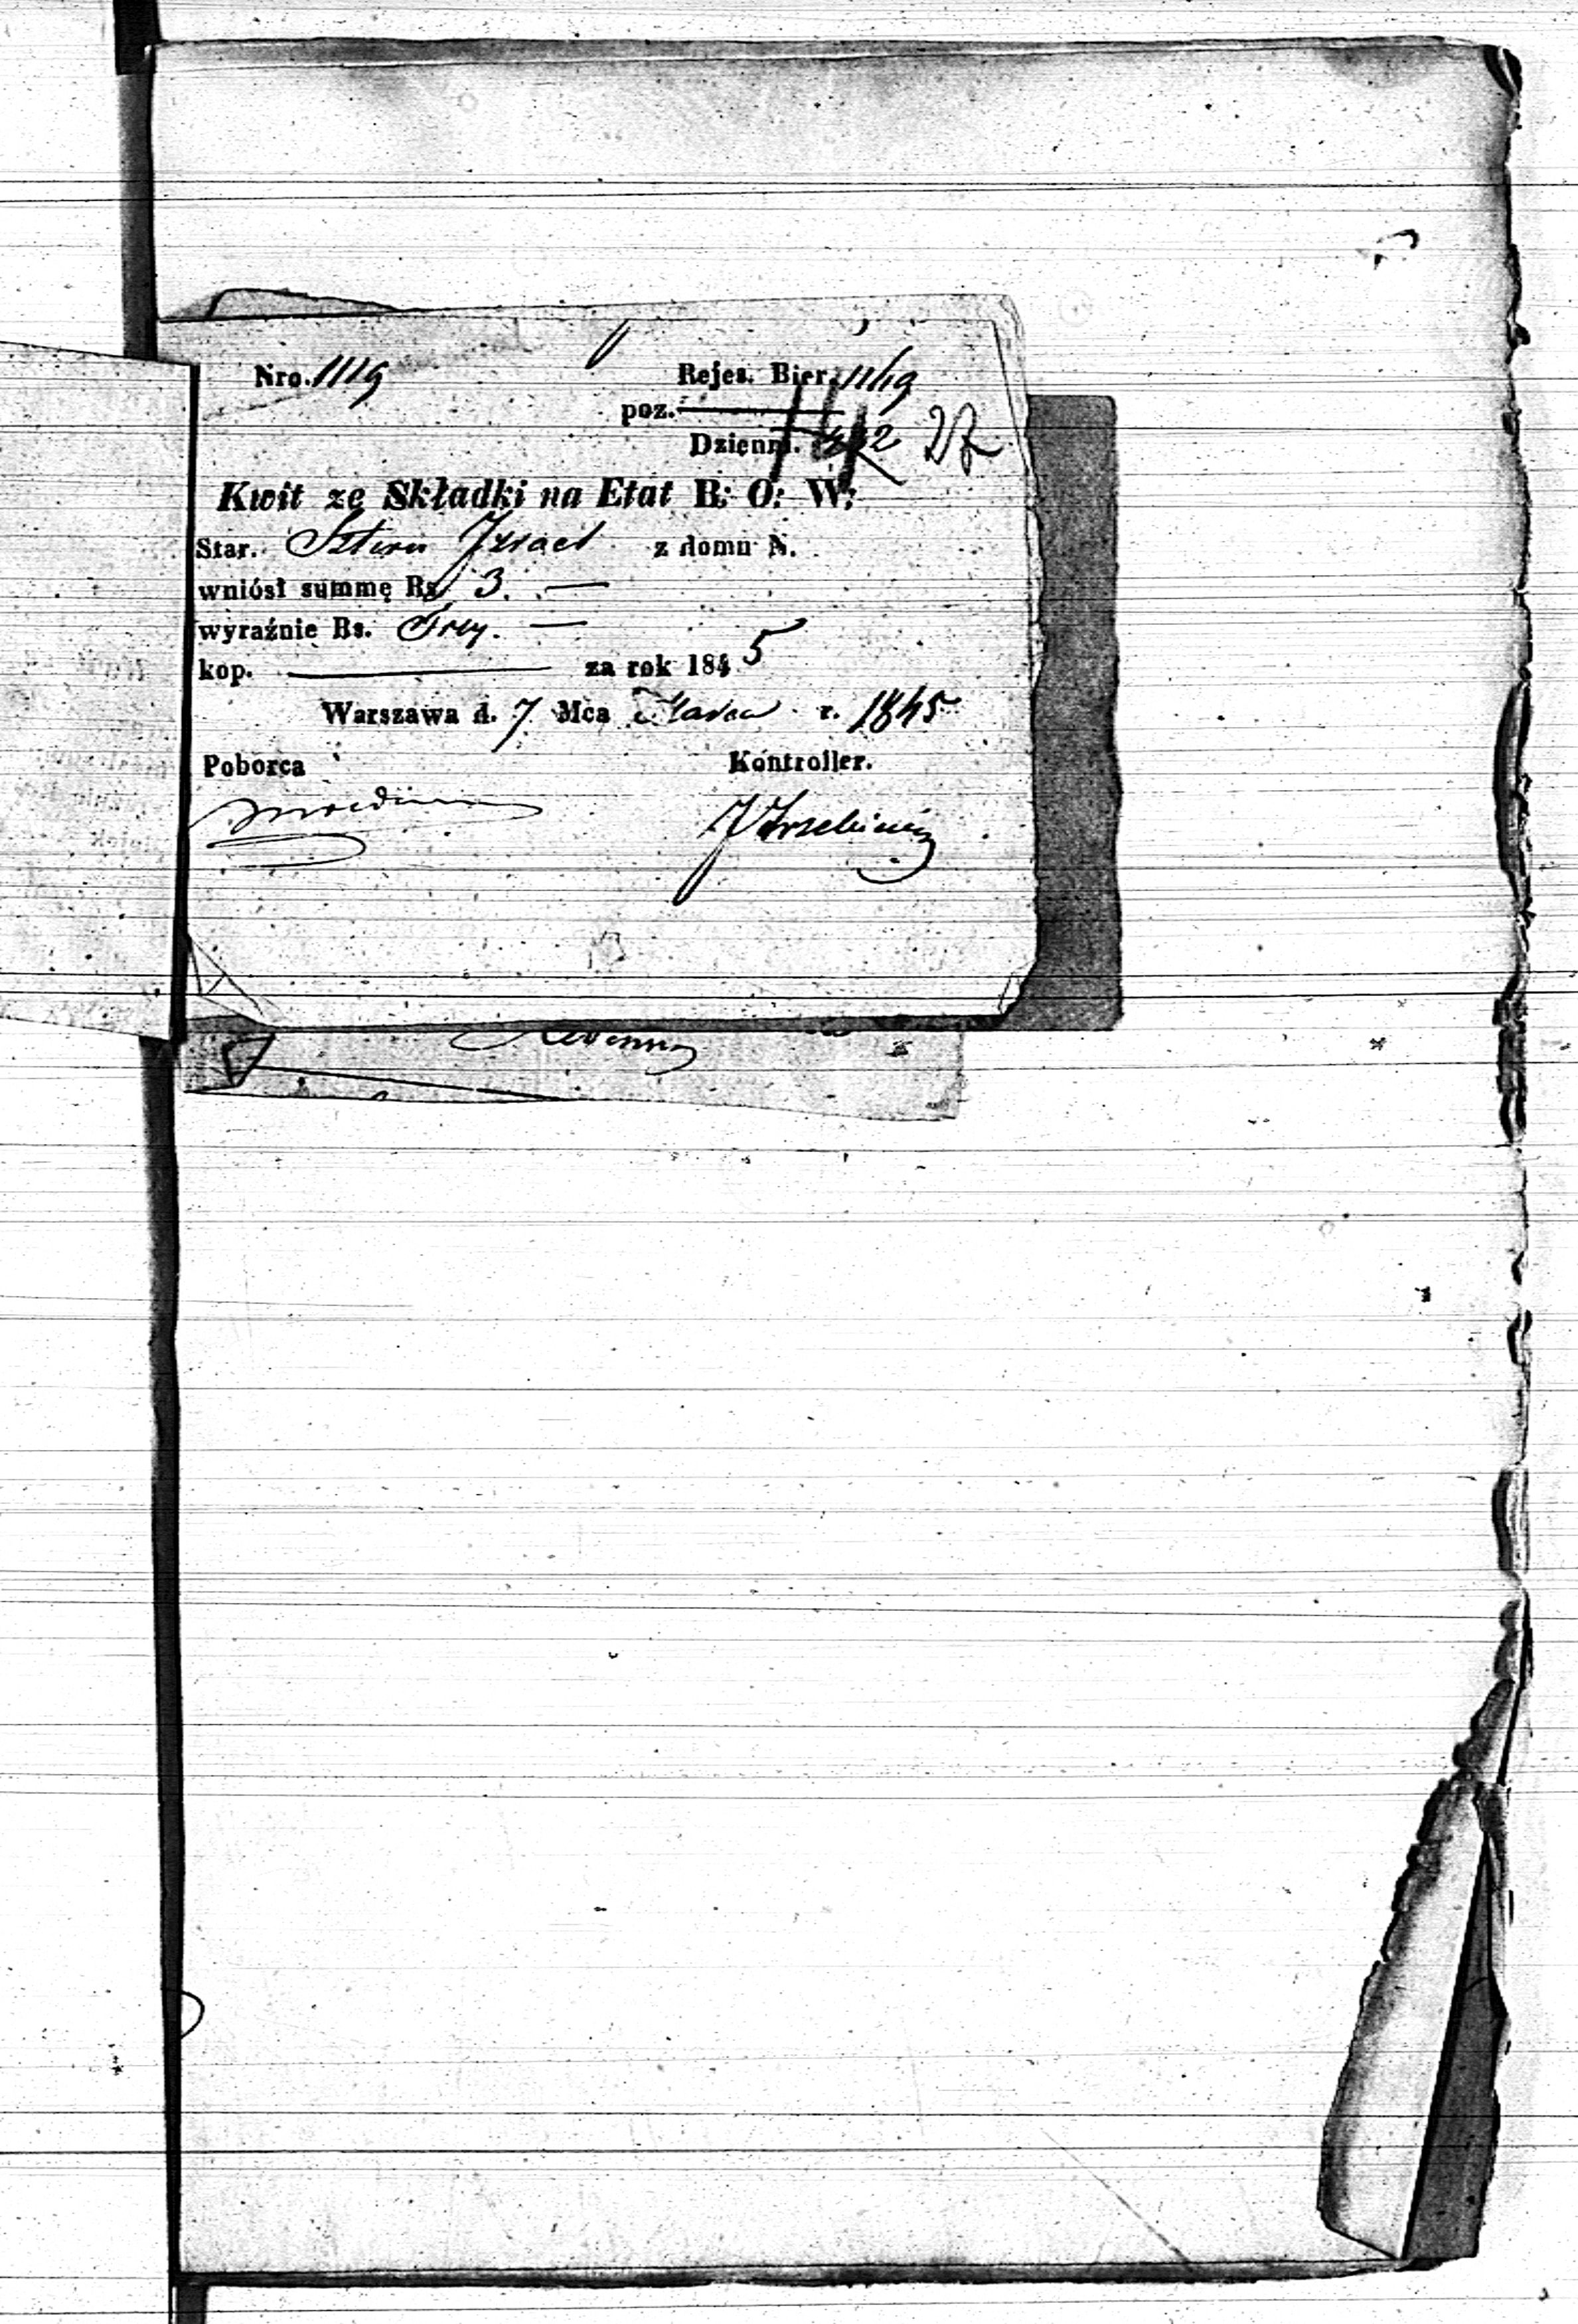 Nro. 1119 Rejes. Bier. 1119
poz.
Dzienn. 27
Kwit ze Składki na Etat B: O: W:
Star. Sztern Izrael z domu N.
wniósł summę Rs. 3. —
wyraźnie Rs. Trzy. —
kop. — za rok 1845
Warszawa d. 7 Mca Marca r. 1845
Poborca Kontroller.